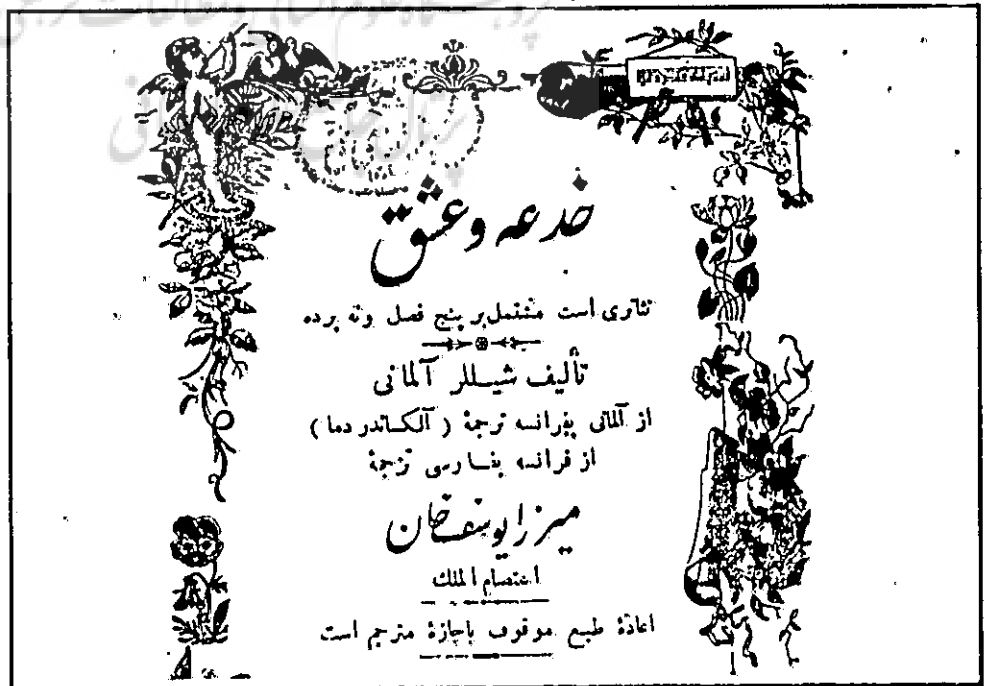 خدعه و عشق
تئاتری است مشتمل بر پنج فصل ونه پرده
تألیف شیللر آلمانی
از آلمانی بفرانسه ترجمۀ ( آلکساندر دما )
از فرانسه بفارسی ترجمۀ
میرزا یوسف خان
اعتصام الملك
اعادۀ طبع موقوف باجازۀ مترجم است